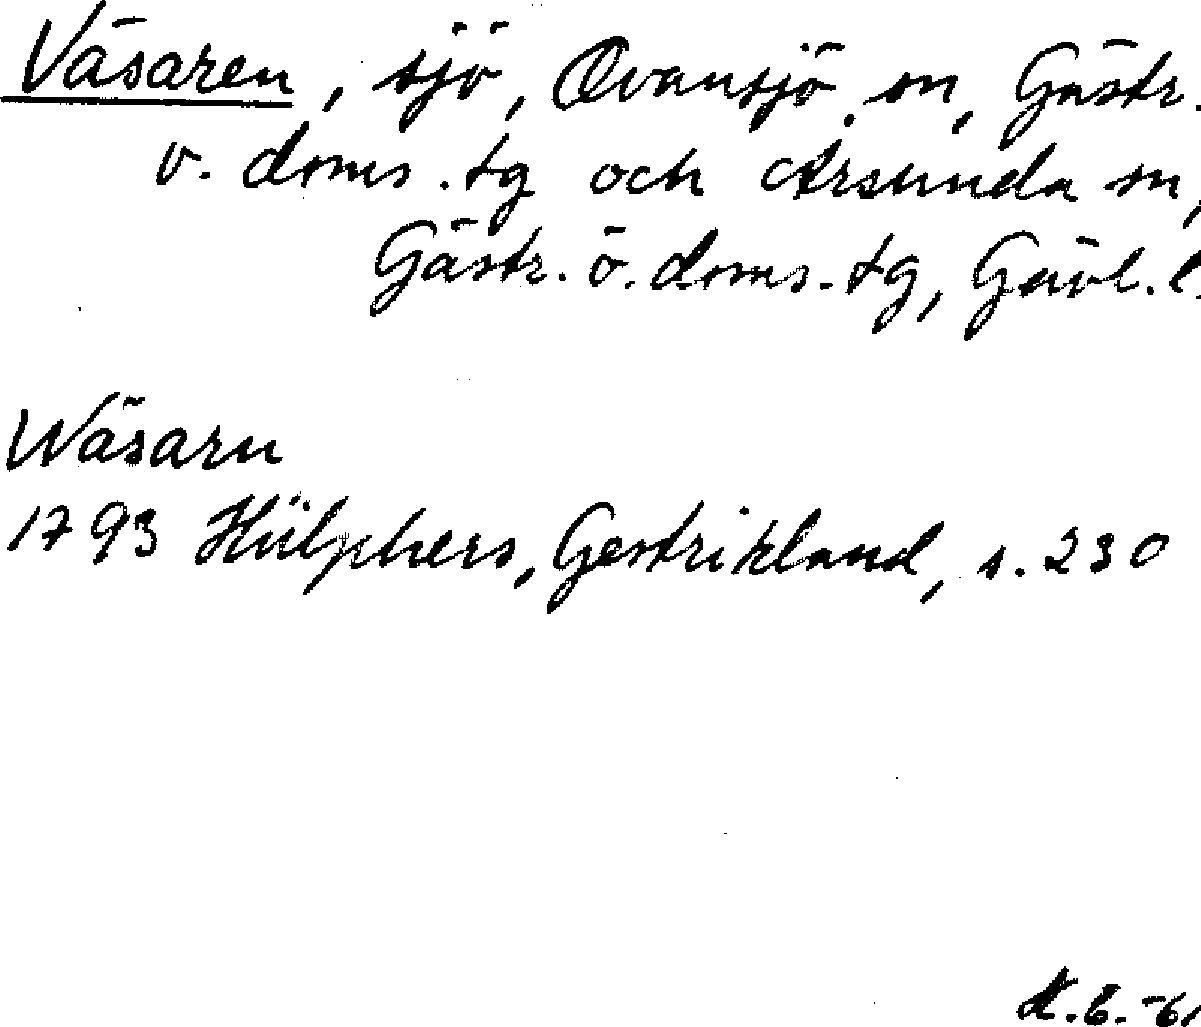 Väsaren, sjö, Ovansjö sn, Gästr.
v. doms.tg och Årsunda sn,
Gästr. ö. doms.tg, Gävl. l.
Wäsarn
1793 Hülphers, Gestrikland, s. 230